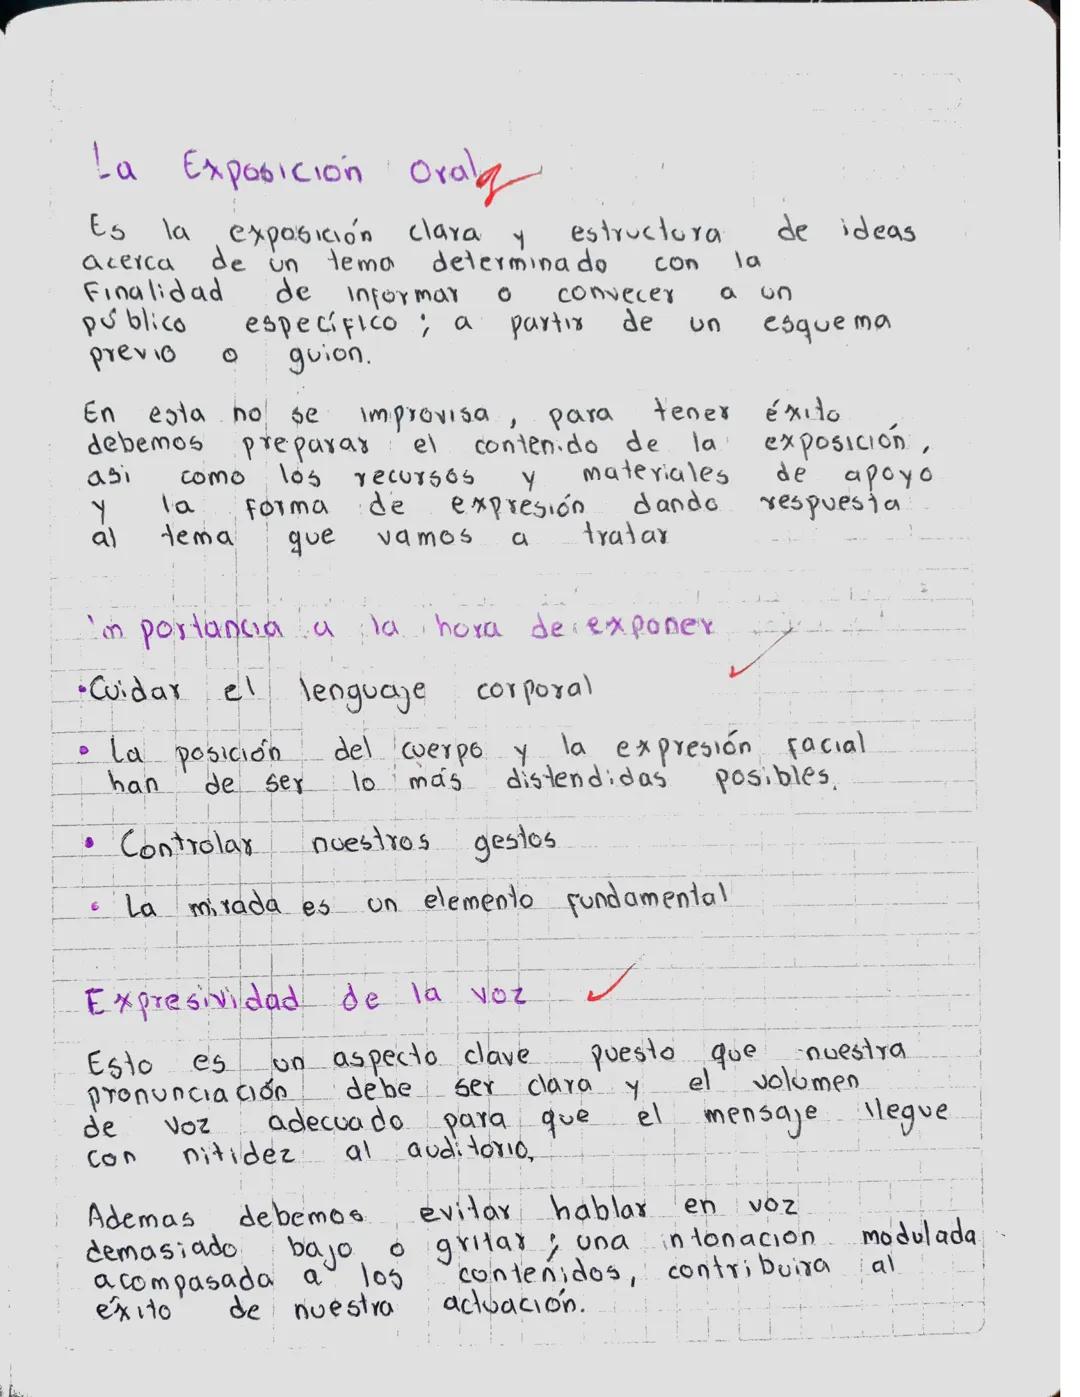 La Exposición Oral
Es la exposición clara y estructura de ideas
acerca de un tema determinado con la
Finalidad de informar o convecer a un
público específico; a partir de un esquema
previo o guion.
En esta no se improvisa, para tener éxito
debemos preparar el contenido de la exposición,
asi como los recursos y materiales de apoyo
y la forma de expresión dando respuesta
al tema que vamos a tratar
Importancia a la hora de exponer
•Cuidar el lenguaje corporal
• La posición del cuerpo y la expresión facial
han de ser lo más distendidas posibles.
• Controlar nuestros gestos
• La mirada es un elemento fundamental
Expresividad de la voz
Esto es un aspecto clave puesto que nuestra
pronunciación debe ser clara y el volumen
de voz adecuado para que el mensaje llegue
con nitidez al auditorio.
Ademas debemos evitar hablar en voz
demasiado bajo o gritar; una intonacion modulada
acompasada a los contenidos, contribuira al
éxito de nuestra actuación.